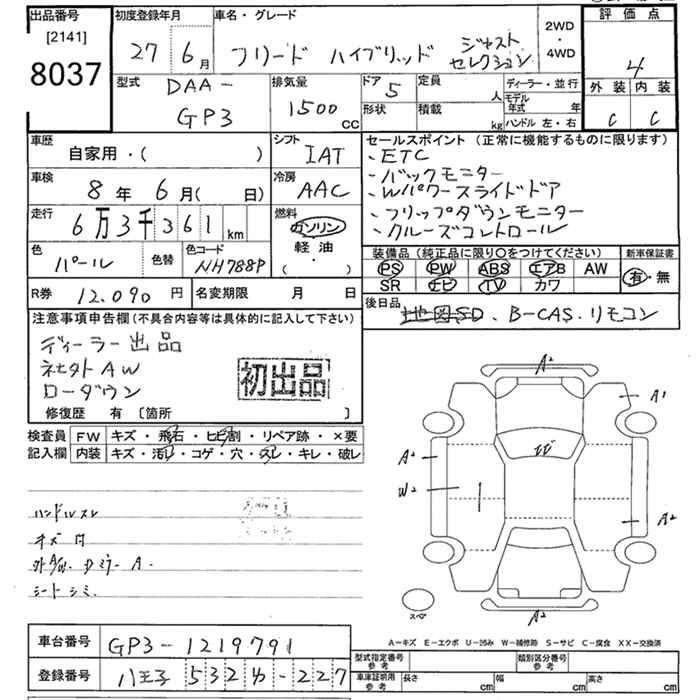 出品番号
[2141]
8037
初度登録年月
27 6月
車名・グレード
フリード ハイブリッド ジャスト
セレクション
2WD
・
4WD
評価点
4
外装 内装
C C
型式
DAA-
GP3
排気量
1500
CC
ドア 5
定員
人
形状
積載
kg
ディーラー・並行
モデル
年式 年
ハンドル 左・右
車歴
自家用・( )
シフト
IAT
車検
8年 6月( 日)
冷房
AAC
走行
6万3千361km
燃料
ガソリン
軽油
( ・ )
色
パール
色替
色コード
NH788P
R券 12,090円
名変期限 月 日
セールスポイント (正常に機能するものに限ります)
・ETC
・バックモニター
・Wパワースライドドア
・フリップダウンモニター
・クルーズコントロール
装備品(純正品に限り〇をつけてください)
PS PW ABS エアB AW
SR ナビ TV カワ
新車保証書
有・無
後日品
地図SD、B-CAS、リモコン
注意事項申告欄(不具合内容等は具体的に記入して下さい)
ディーラー出品
社外AW
ローダウン
初出品
修復歴 有 〔箇所 〕
検査員
記入欄
FW キズ・飛石・ヒビ割・リペア跡・×要
内装 キズ・汚れ・コゲ・穴・スレ・キレ・破レ
ハンドルスレ
外A/W、Dミラー A.
シートシミ.
A²
A¹
A²
W²
A²
A²
スペア
A−キズ E−エクボ U−凹み W−補修跡 S−サビ C−腐食 XX−交換済
車台番号 GP3-1219791
登録番号 八王子 532 -227
型式指定番号
参考
類別区分番号
参考
車庫証明用
参考
長さ cm
幅 cm
高さ cm